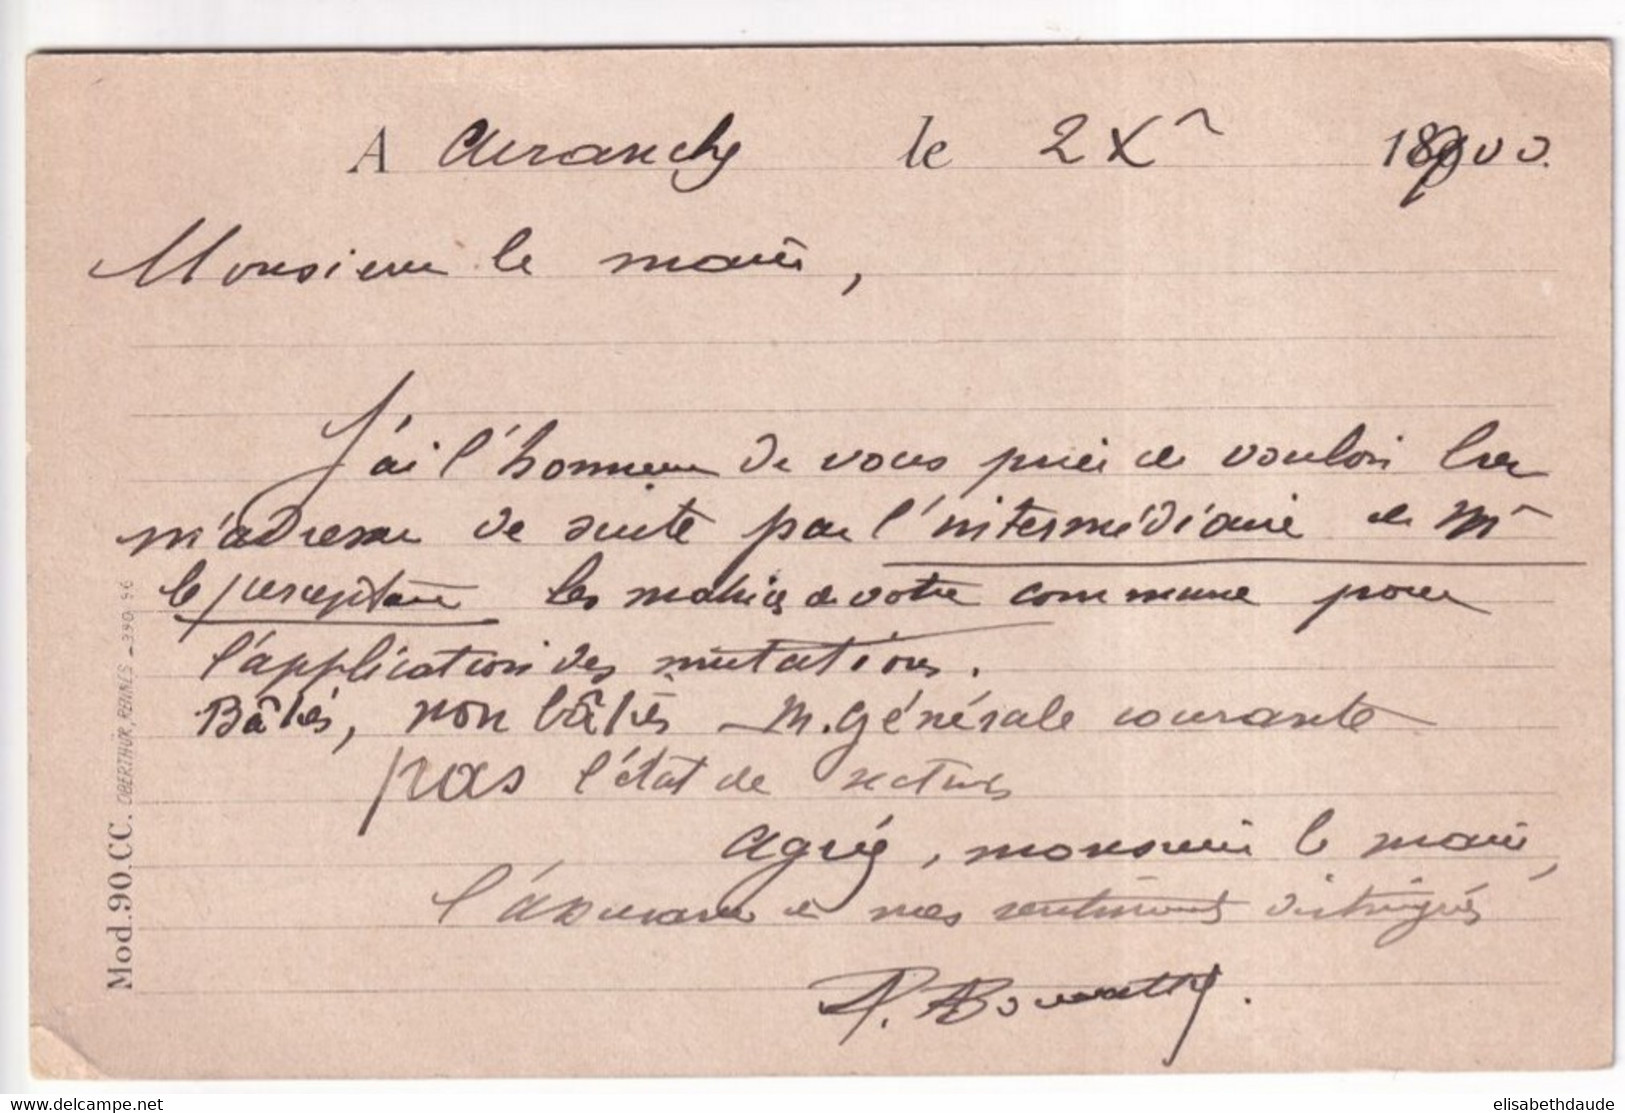 A Avranches le 2 Xre 1900.
Monsieur le maire,
J'ai l'honneur de vous prier de vouloir bien
m'adresser de suite par l'intermédiaire de Mr
le percepteur les matrices de votre commune pour
l'application des mutations.
Bâties, non bâties M. Générale courante
pas l'état de sections
Agréez, monsieur le maire,
l'assurance de mes sentiments distingués
Mod. 90. CC. OBERTHUR, RENNES _ 390 96
elisabethdaude
delcampe.net